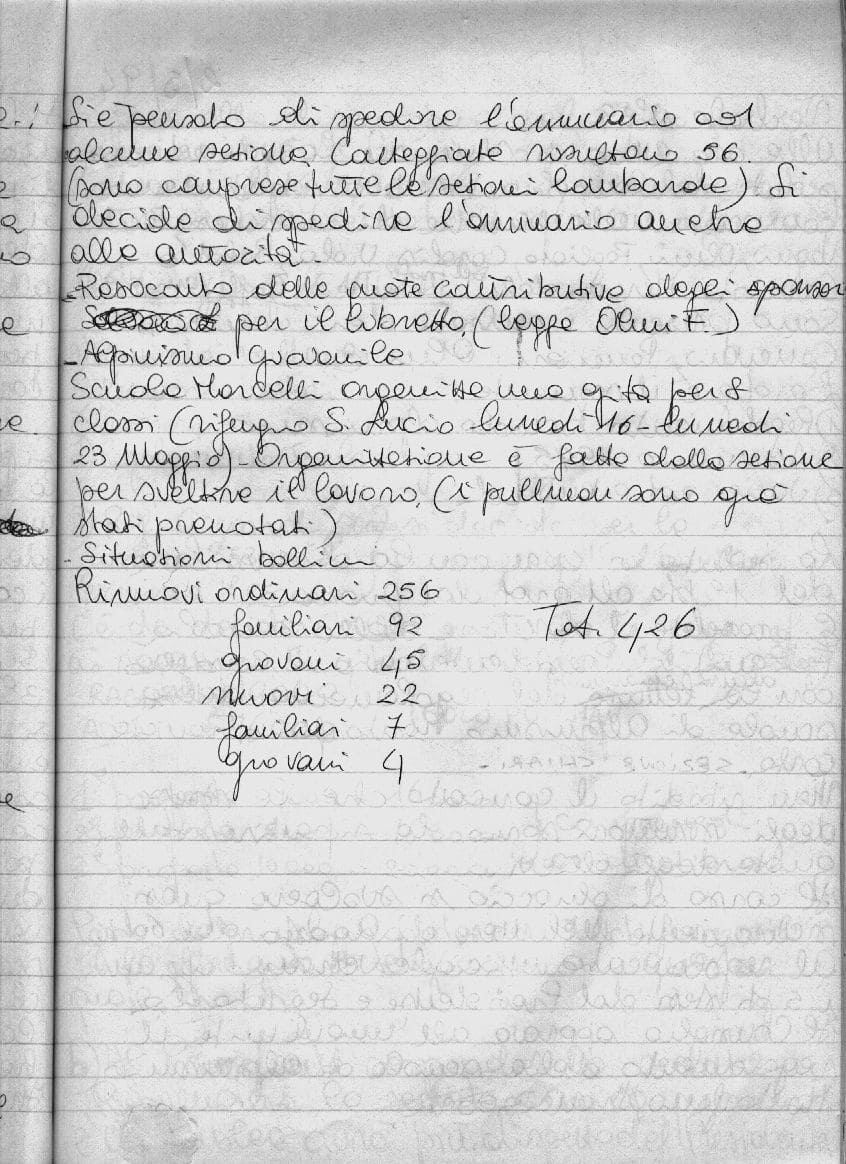 Si è pensato di spedire l'annuario ad
alcune sezione. Conteggiate risultano 56.
(sono comprese tutte le sezioni lombarde) Si
decide di spedire l'annuario anche
alle autorità -
- Resoconto delle quote contributive degli sponsor
per il libretto. (legge Olmi F.)
- Alpinismo Giovanile
Scuola Morcelli organizza una gita per 8
classi (rifugio S. Lucio - lunedì 16 - lunedì
23 Maggio) - Organizzazione è fatta dalla sezione
per sveltire il lavoro. (i pullman sono già
stati prenotati)
- Situazioni bollini
Rinnovi ordinari 256
familiari 92 Tot. 426
giovani 45
nuovi 22
familiari 7
giovani 4